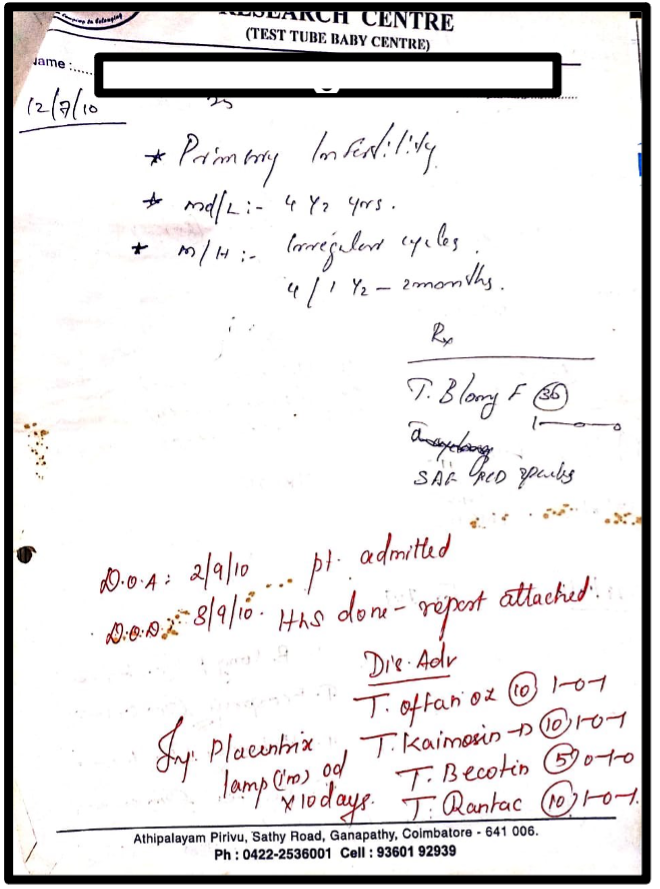 RESEARCH CENTRE
(TEST TUBE BABY CENTRE)
Name :.....
12/7/10
* Primary Infertility
* md/L :- 4 1/2 yrs.
* M/H :- Irregular cycles.
4 / 1 1/2 - 2months.
Rx
T. Blong F (30)
1-0-0
SAF
D.O.A : 2/9/10 ... pt. admitted
D.O.D : 3/9/10. HhS done - report attached.
Dis. Adv
T. offan oz (10) 1-0-1
Inj. Placentrix T. Kaimosin -> (10) 1-0-1
1amp (im) od T. Becotin (5) 0-1-0
x 10 days. T. Rantac (10) 1-0-1.
Athipalayam Pirivu, Sathy Road, Ganapathy, Coimbatore - 641 006.
Ph : 0422-2536001 Cell : 93601 92939